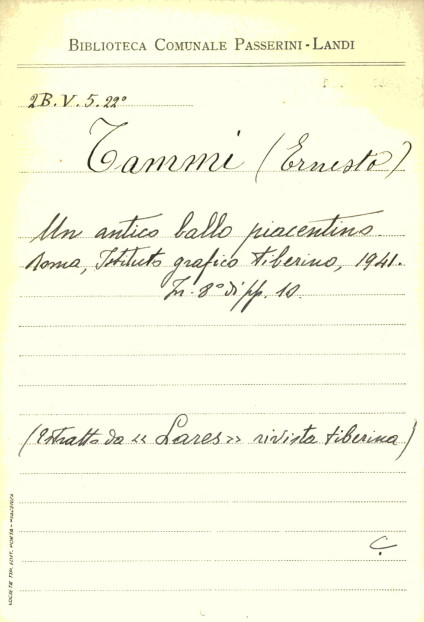 BIBLIOTECA COMUNALE PASSERINI-LANDI
2B.V.5.22°
Tammi (Ernesto)
Un antico ballo piacentino.
Roma, Istituto grafico tiberino, 1941.
In-8° di pp. 10.
(Estratto da « Lares » rivista tiberina)
C.
SOCIETÀ TIP. EDIT. PORTA - PIACENZA